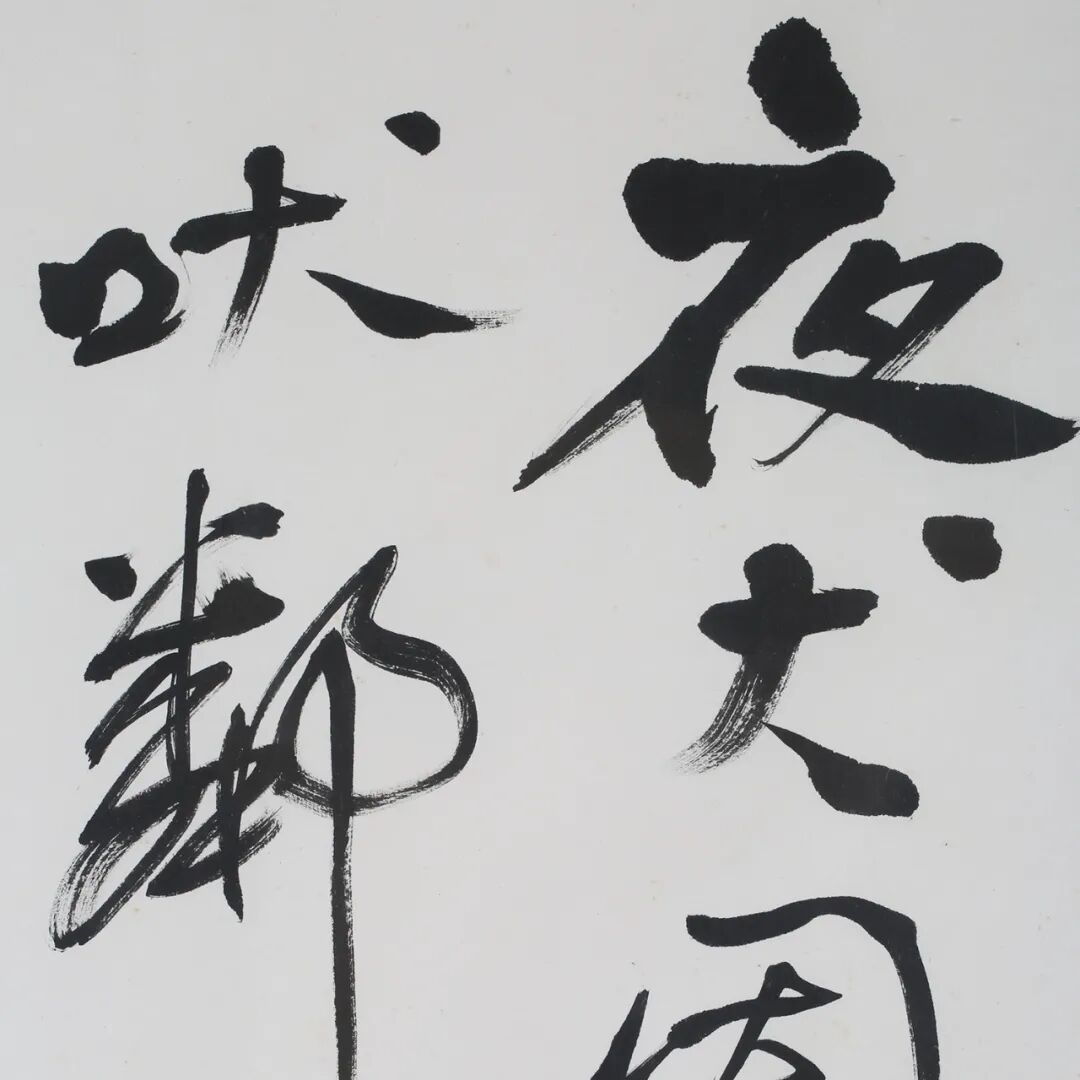 夜犬因
吠鄰